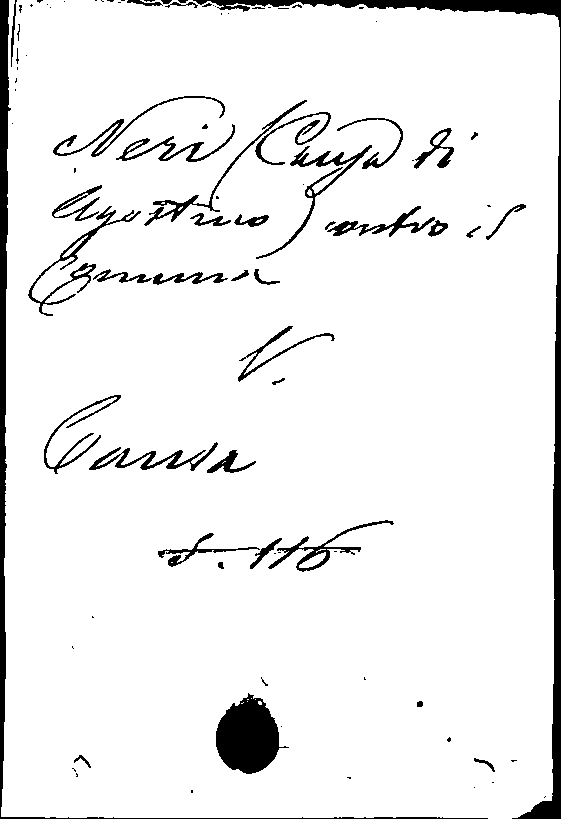 Neri (Causa di
Agostino) contro il
Comune
V.
Causa
S. 116